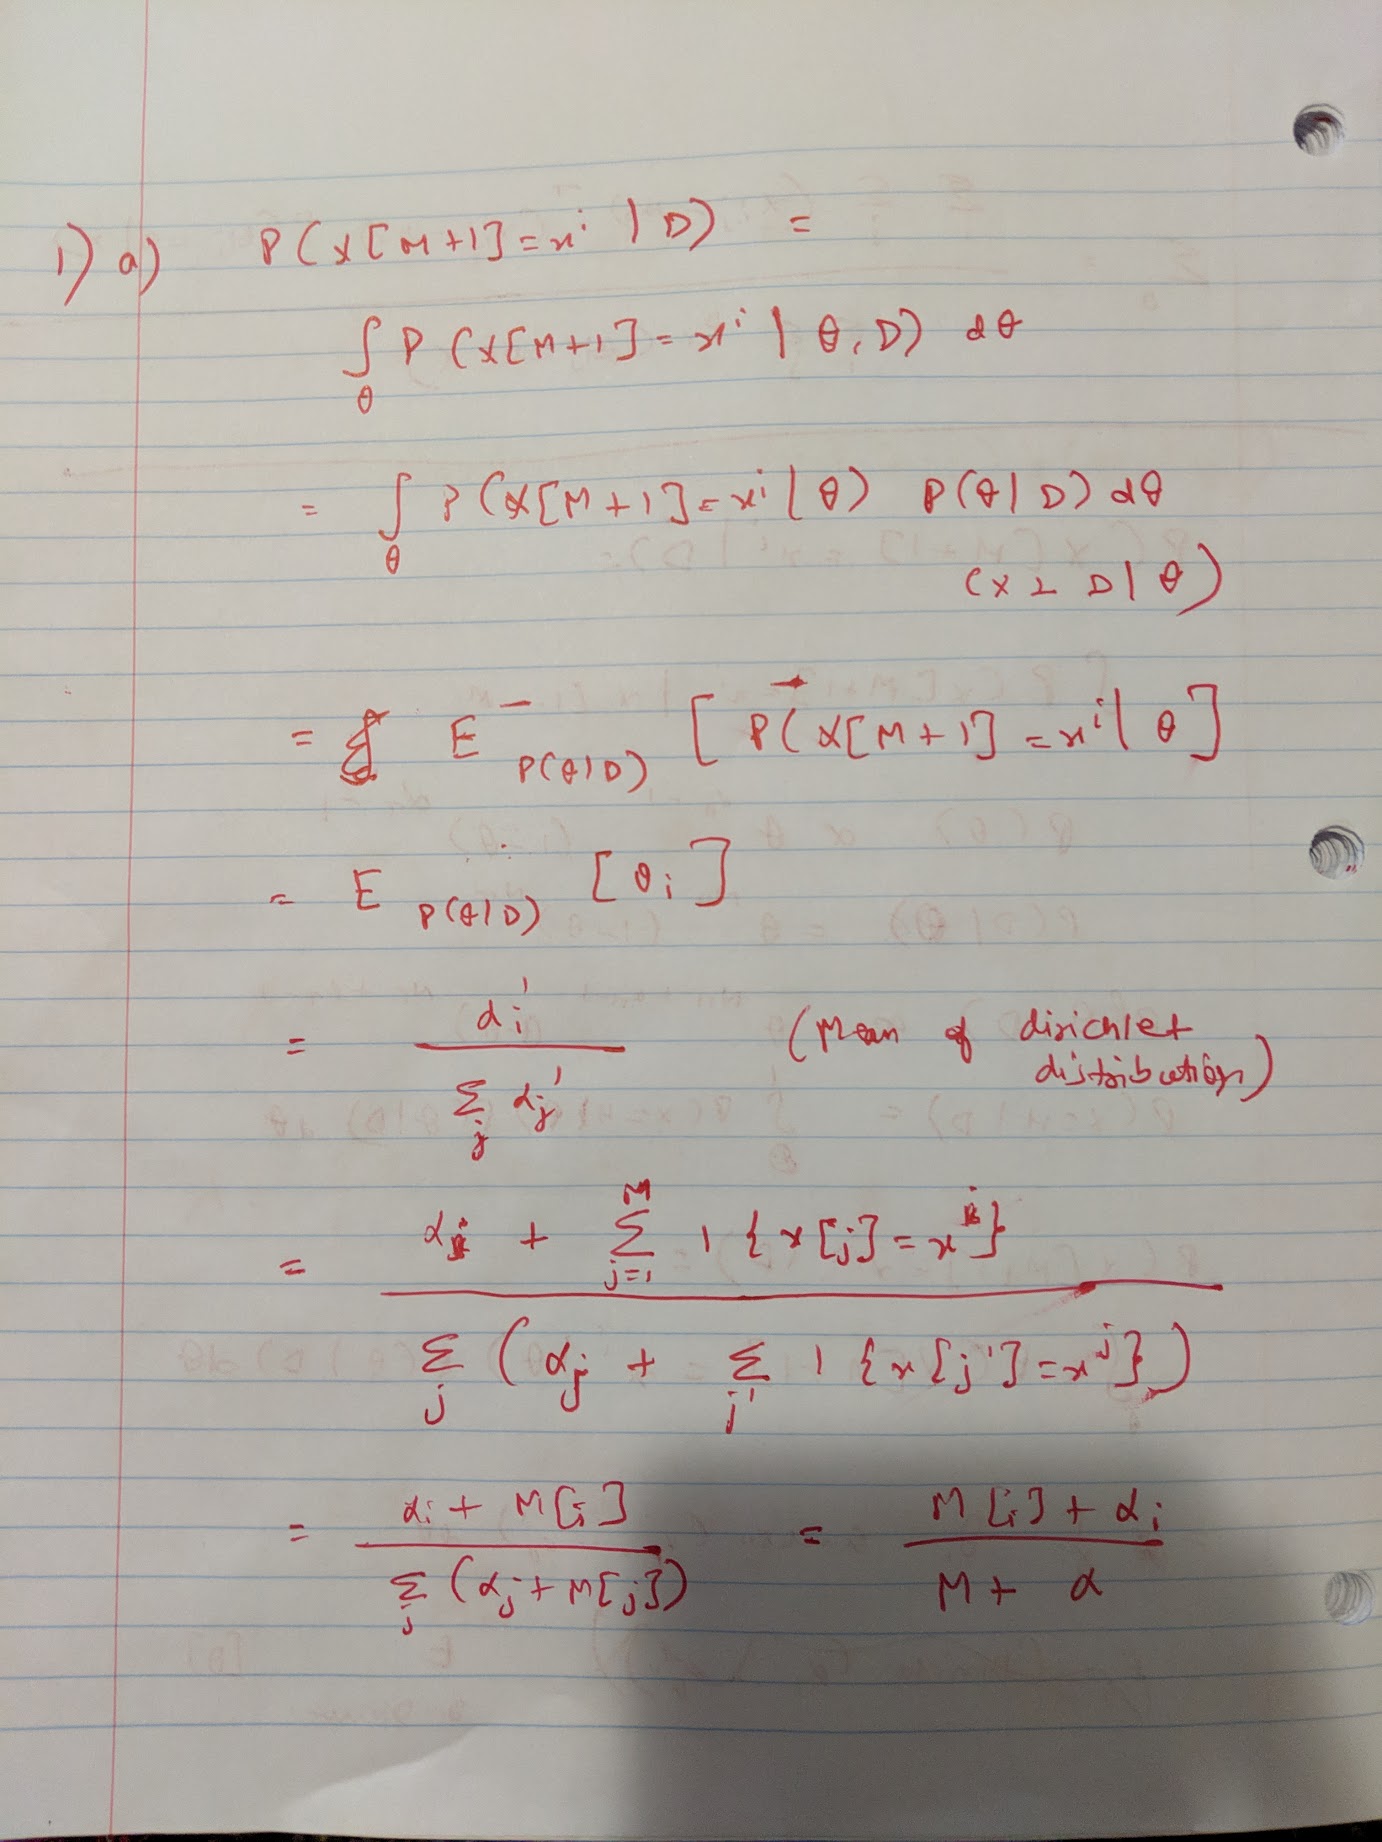 1) a) P(X[M+1]=xⁱ | D) =
∫_θ P(X[M+1]=xⁱ | θ, D) dθ
= ∫_θ P(X[M+1]=xⁱ | θ) P(θ|D) dθ
(X ⊥ D | θ)
= E_{P(θ|D)} [P(X[M+1]=xⁱ | θ]
= E_{P(θ|D)} [θᵢ]
= αᵢ' / Σ_j αⱼ' (Mean of dirichlet
distribution)
= αᵢ + Σ_{j=1}^{M} 1{x[j]=xⁱ} / Σ_j (αⱼ + Σ_{j'} 1{x[j']=xʲ})
= αᵢ + M[i] / Σ_j (αⱼ + M[j]) = M[i] + αᵢ / M + α